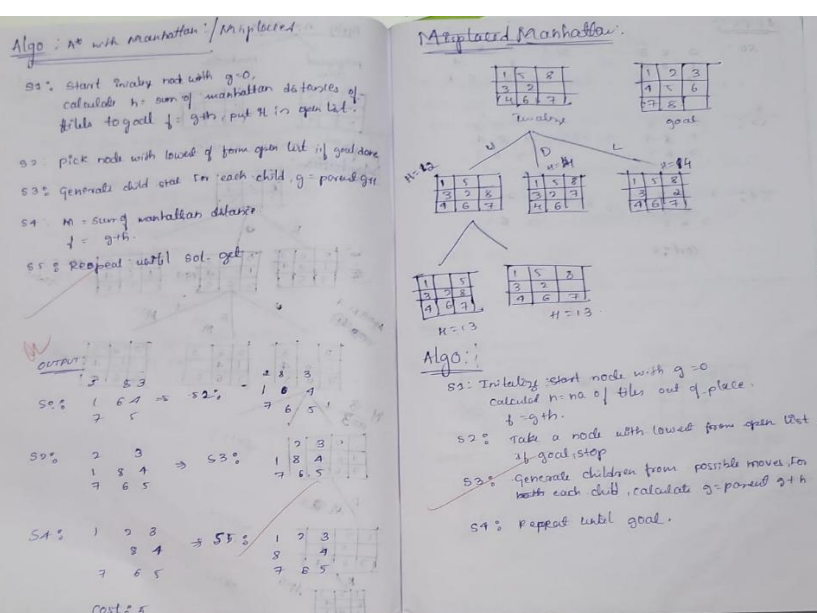 Algo : A* with Manhattan / Misplaced
S1: Start inialey node with g=0,
calculate h= sum of manhattan distances of
tiles to goal f= g+h, put it in open list.
S2 pick node with lowest of form open list if goal done
S3: Generate child stat For each child, g= parent g+1
S4 M = sum of manhattan distance
f = g+h.
S5: Repeat until sol. get
OUTPUT:
3 8 3 2 8 3
S0: 1 6 4 ⇒ S2: 1 0 4
7 5 7 6 5
S2: 2 3 ⇒ S3: 2 3
1 8 4 1 8 4
7 6 5 7 6 5
S4: 1 2 3 ⇒ S5: 1 2 3
8 4 8 4
7 6 5 7 6 5
Cost: 5
Misplaced Manhattan:
1 5 8 1 2 3
3 2 4 5 6
4 6 7 7 8
goal
U D L
H=12 H=14
1 5 1 5 8 1 5 8
3 2 8 3 2 7 3 2
4 6 7 4 6 4 6 7
1 5 1 5 8
3 2 8 3 2
4 6 7 4 6 7
H=13 H=13
Algo:
S1: Initialize start node with g=0
calculat h= no. of tiles out of place.
f=g+h.
S2: Take a node with lowest from open list
if goal, stop
S3: Generate children from possible moves, for
each child, calculate g=parent g+h
S4: Repeat until goal.